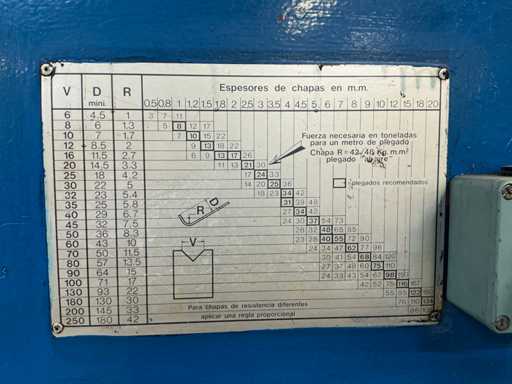 V D mini. R Espesores de chapas en m.m.
0.5 0.8 1 1.2 1.5 1.8 2 2.5 3 3.5 4 4.5 5 6 7 8 9 10 12 15 18 20
6 4.5 1 3 7 11
8 6 1.3 5 8 12 17
10 7 1.7 7 10 15 22
12 8.5 2 9 13 18 22
16 11.5 2.7 6 9 13 17 26
20 14.5 3.3 11 13 21 30
25 18 4.2 17 24 33
30 22 5 14 20 25 36
32 23 5.4 18 23 34 42
35 25 5.8 31 39 48
40 29 6.7 27 34 42
45 32 7.5 24 30 37 54 73
50 36 8.3 48 65 85
60 43 10 23 40 55 72 90
70 50 11.5 34 47 62 77 98
80 57 13.5 30 41 54 68 84 120
90 64 15 27 37 48 60 75 110
100 71 17 24 33 43 54 67 98
130 93 22 42 52 75
180 130 30 55
200 145 33 76 110
250 180 42
Fuerza necesaria en toneladas
para un metro de plegado
Chapa R=42/46 Kg. mm²
plegado "al aire"
plegados recomendados
R D
V
Para chapas de resistencia diferentes
aplicar una regla proporcional